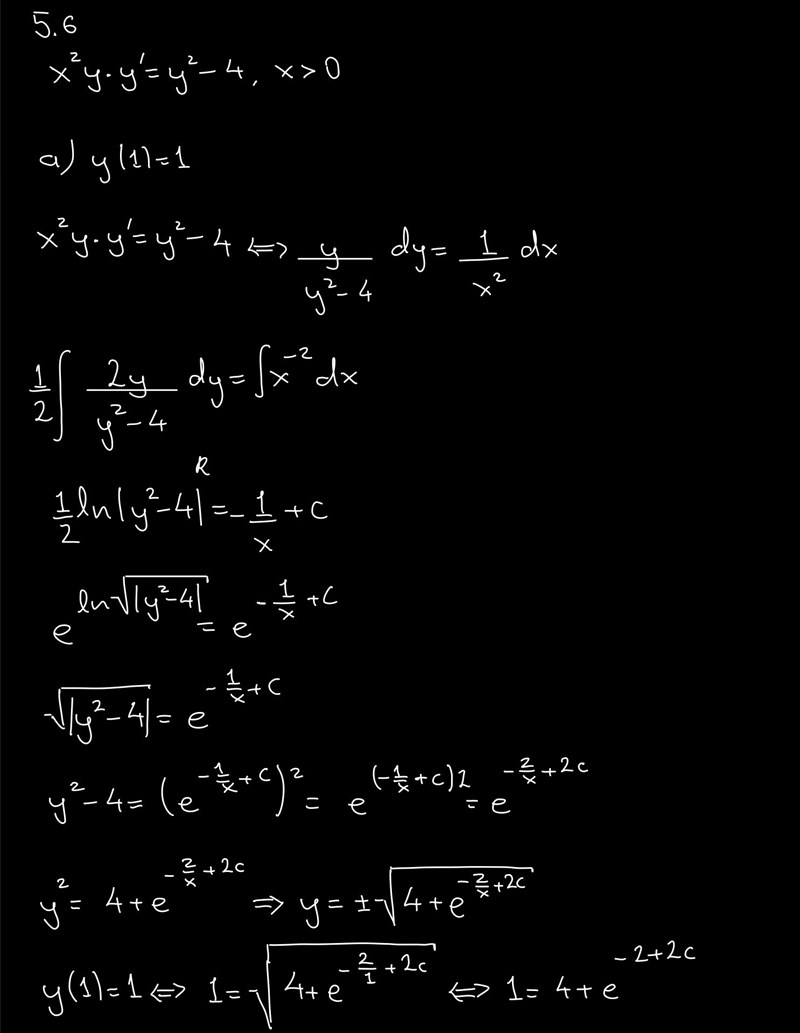 5.6
x²y·y' = y² − 4, x > 0
a) y(1) = 1
x²y·y' = y² − 4 ⇔ y/(y² − 4) dy = 1/x² dx
1/2 ∫ 2y/(y² − 4) dy = ∫ x⁻² dx
R
1/2 ln|y² − 4| = −1/x + C
e^(ln√|y² − 4|) = e^(−1/x + C)
√|y² − 4| = e^(−1/x + C)
y² − 4 = (e^(−1/x + C))² = e^((−1/x + C)2) = e^(−2/x + 2C)
y² = 4 + e^(−2/x + 2C) ⇒ y = ±√(4 + e^(−2/x + 2C))
y(1) = 1 ⇔ 1 = √(4 + e^(−2/1 + 2C)) ⇔ 1 = 4 + e^(−2 + 2C)